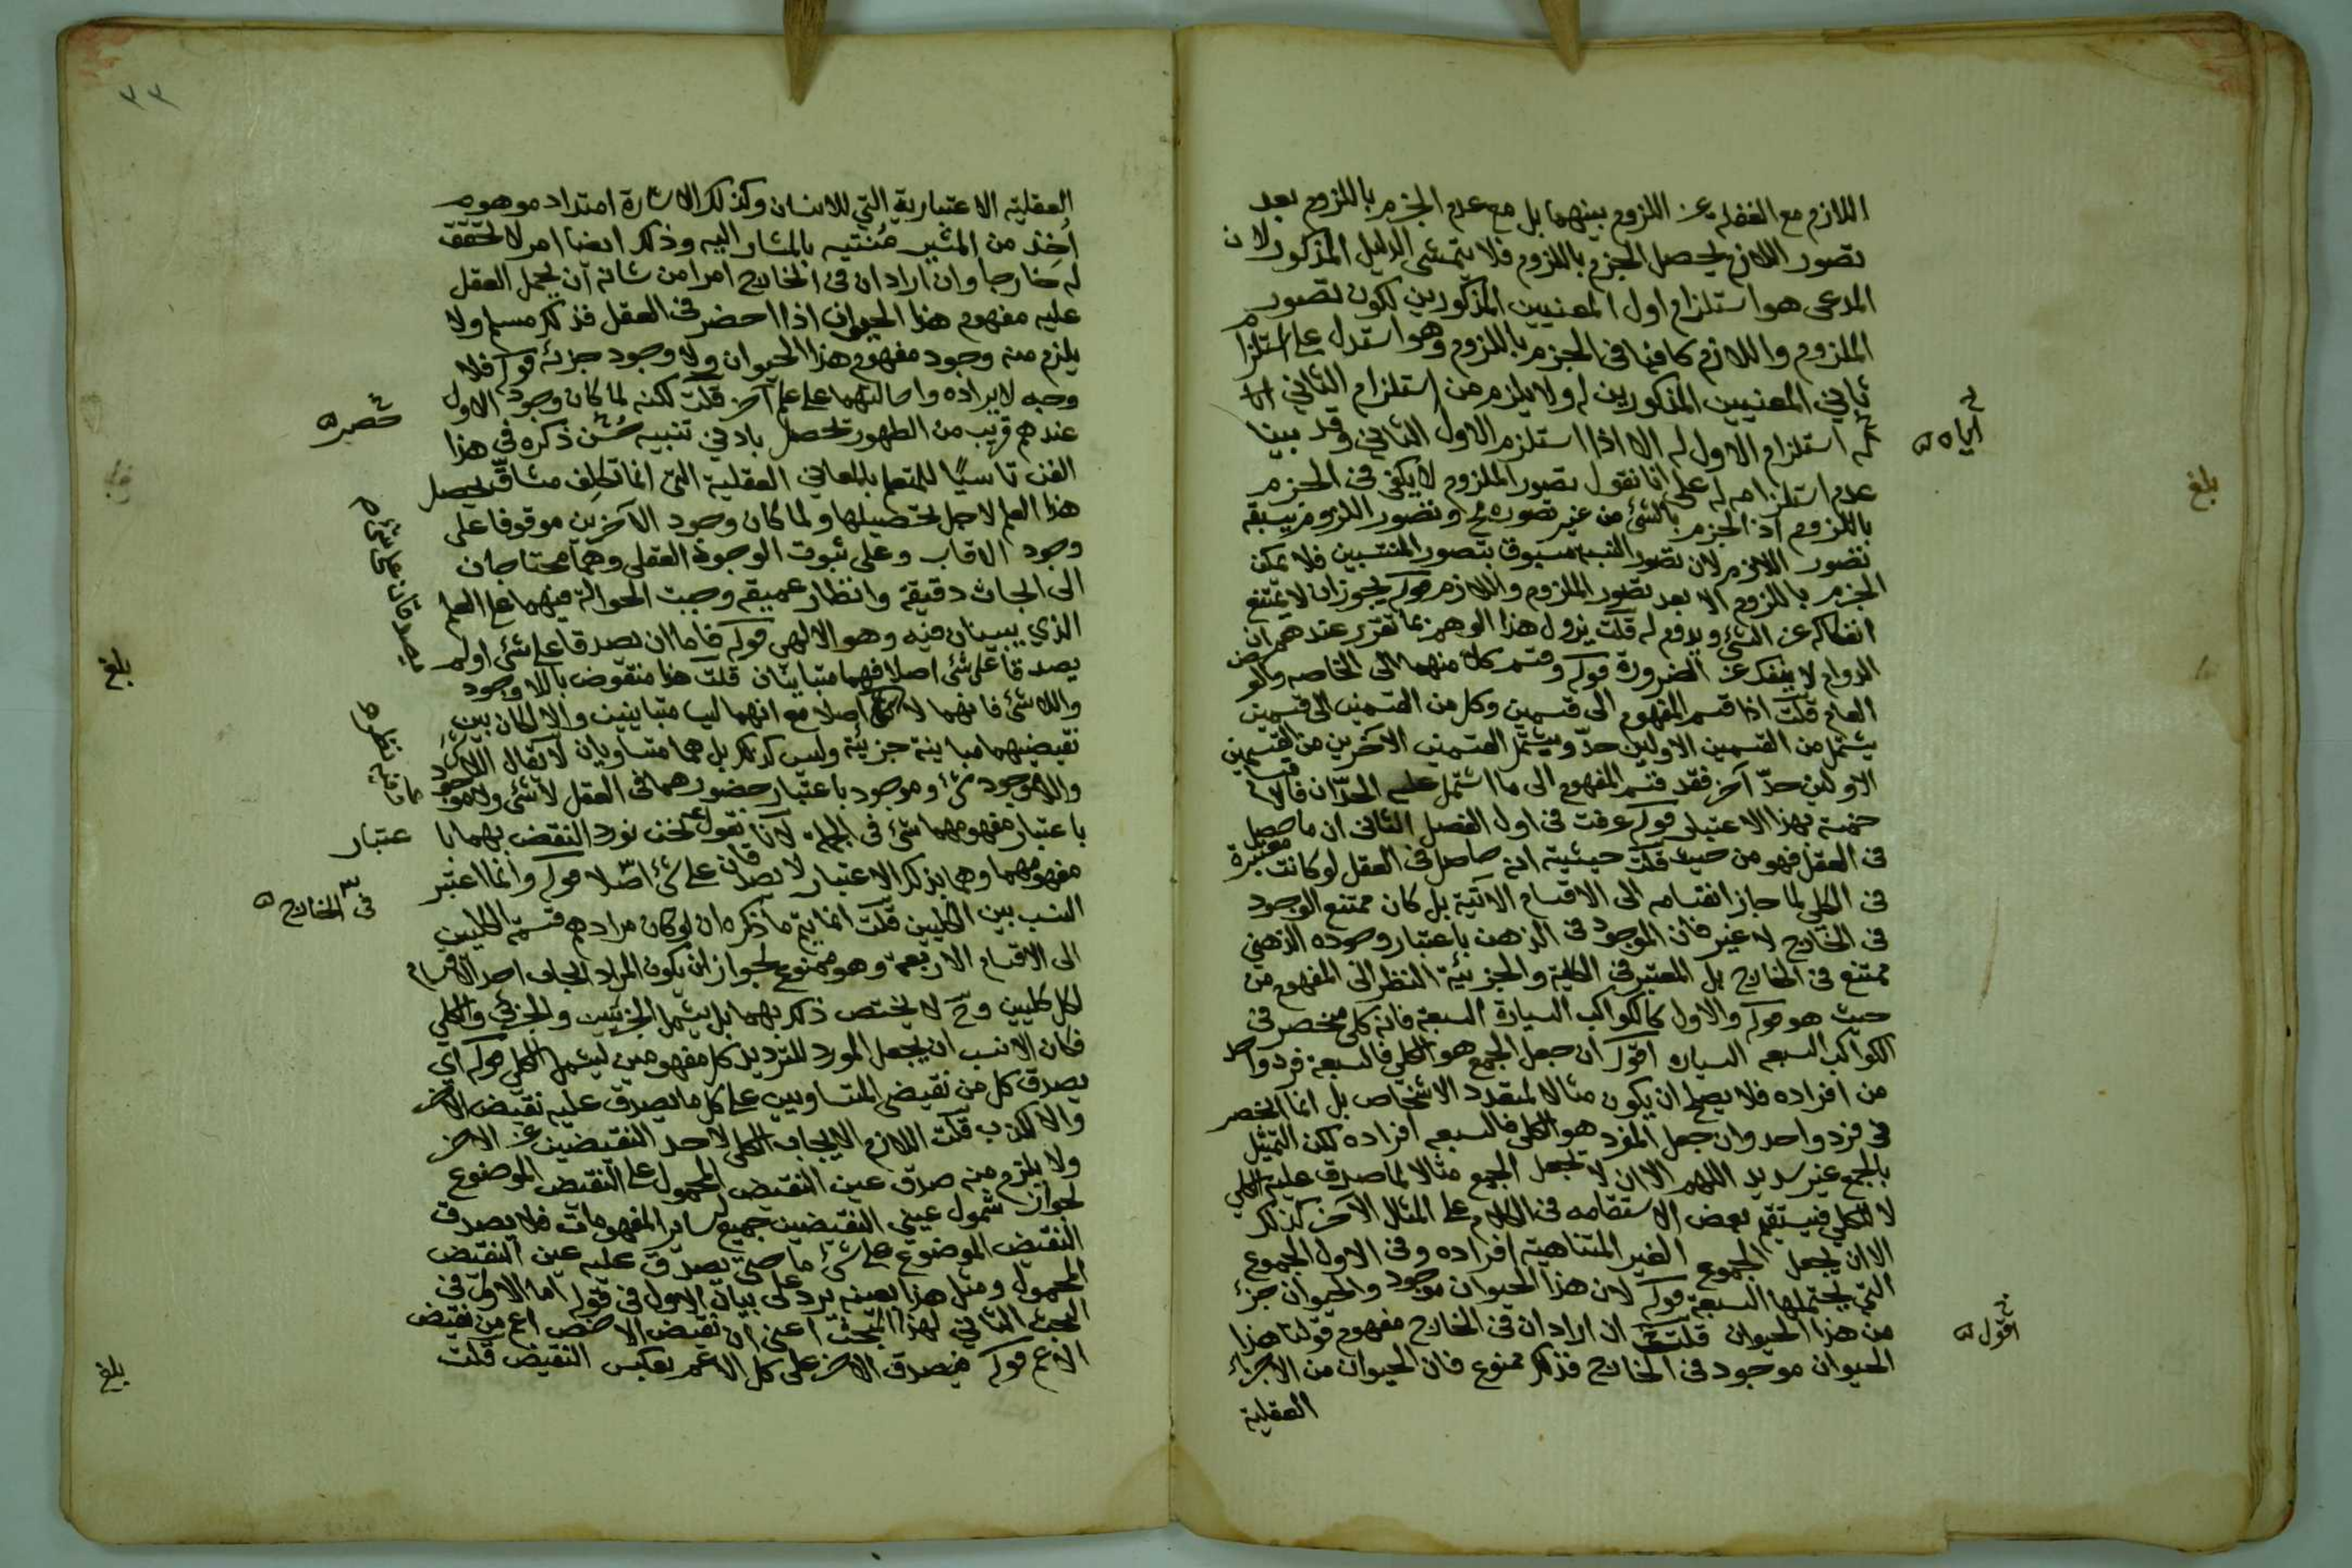 اللازم مع الغفلة عن اللزوم بينهما بل مع عدم الجزم باللزوم بعد
تصور اللازم يحصل الجزم باللزوم فلا يتمشى الدليل المذكور لان
المدعى هو استلزام اول المعنيين المذكورين لكون تصور
الملزوم واللازم كافيا في الجزم باللزوم وهو استدل على استلزام
ثاني المعنيين المذكورين له ولا يلزم من استلزام الثاني
له استلزام الاول له الا اذا استلزم الاول الثاني وقد بينا
اياه
عدم استلزامه له على انا نقول تصور الملزوم لا يكفي في الجزم
باللزوم اذ الجزم بالشئ من غير تصوره مح وتصور اللزوم يسبقه
تصور اللازم لان تصور النسبة مسبوق بتصور المنتسبين فلا يمكن
الجزم باللزوم الا بعد تصور الملزوم واللازم قوله يجوز ان لا يمتنع
انفكاكه عن الشئ ويدوم له قلت يزول هذا الوهم بما تقرر عندهم ان
الدوام لا ينفك عن الضرورة قوله وقسم كلا منهما الى الخاصه والعرض
العام قلت اذا قسم المفهوم الى قسمين وكل من القسمين الى قسمين
يشتمل من القسمين الاولين حدّ ويشتمل القسمين الاخرين من القسمين
الاولين حدّ آخر فقد قسم المفهوم الى ما اشتمل عليه الحدّان فالاقسام
خمسة بهذا الاعتبار قوله عرفت في اول الفصل الثاني ان ما حصل
في العقل فهو من حيث قلت حيثية انه حاصل في العقل لو كانت معتبرة
في الكلي لما جاز انقسامه الى الاقسام الآتية بل كان ممتنع الوجود
في الخارج لا غير فان الموجود في الذهن باعتبار وجوده الذهني
ممتنع في الخارج بل المعتبر في الكلية والجزئية النظر الى المفهوم من
حيث هو قوله والاول كالكواكب السيارة السبعة فانه كلي منحصر في
الكواكب السبعه السياره اقول ان جعل الجمع هو الكلي فالسبعة فرد واحد
من افراده فلا يصلح ان يكون مثالا لمتعدد الاشخاص بل انما انحصر
في فرد واحد وان جعل المفرد هو الكلي فالسبعه افراده لكن التمثيل
بالجمع غير سديد اللهم الا ان لا يجعل الجمع مثالا لما صدق عليه الكلي
لا للكلي فيستقيم بعض الاستقامه في الكلام على المثال الآخر كذلك
الا ان يجعل المجموع الغير المتناهية افراده وفي الاول المجموع
التي يحتملها السبعة قوله لان هذا الحيوان موجود والحيوان جزء
من هذا الحيوان قلت ان اراد ان في الخارج مفهوم قولنا هذا
اقول
الحيوان موجود في الخارج فذلك ممنوع فان الحيوان من الاجزاء
العقلية
بلغ
٣٣
العقلية الاعتبارية التي للانسان وكذلك الاشارة امتداد موهوم
اُخِذ من المشير مُنتَه بالمشار اليه وذلك ايضا امر لا تحقق
له خارجا وان اراد ان في الخارج امرا من شانه ان يحمل العقل
عليه مفهوم هذا الحيوان اذا احضر في العقل فذلك مسلم ولا
يلزم منه وجود مفهوم هذا الحيوان ولا وجود جزئه قوله فلا
وجه لايراده واحالتهما على علم آخر قلت لكنه لما كان وجود الاول
عندهم قريب من الظهور تحصل بادني تنبيه حَسُن ذكره في هذا
الفن تاسيًا للمتعلم بالمعاني العقلية التي انما تكلف مشاقّ تحصيل
هذا العلم لاجل تحصيلها ولما كان وجود الآخرين موقوفا على
وجود الاقاب وعلى ثبوت الوجود العقلي وهما محتاجان
الى ابحاث دقيقة وانظار عميقه وجبت الحوالة فيهما على العلم
الذي يبينان فيه وهو الالهي قوله فاما ان يصدقا على شئ او لم
يصدقا على شئ اصلا فهما متباينان قلت هذا منقوض باللا وجود
واللا شئ فانهما لا اصلا مع انهما ليسا متباينين والا لكان بين
يصدقان على شئ
نقيضيهما مباينة جزئية وليس كذلك بل هما متساويان لا يقال اللاشئ
واللا موجود شئ وموجود باعتبار حضورهما في العقل لا شئ ولا موجود
باعتبار مفهومهما شئ في الجمله لانا نقول نحن نورد النقض بهما باعتبار
مفهومهما وهما بذلك الاعتبار لا يصدقان على شئ اصلا قوله وانما اعتبر
في الخارج
النسب بين الكليين قلت انما يتم ما ذكره ان لو كان مرادهم قسمة الكليين
الى الاقسام الاربعة وهو ممنوع لجواز ان يكون المراد ايجاب احد الاقسام
لكل كليين وح لا يختص ذلك بهما بل يشمل الجزئيين والجزئي والكلي
فكان الانسب ان يجعل المورد للترديد كل مفهومين ليشمل الكل قوله اي
يصدق كل من نقيضي المتساويين على كل ما يصدق عليه نقيض الآخر
والا لكذب قلت اللازم الايجاب الكلي لاحد النقيضين عن الاخر
ولا يلزم منه صدق عين النقيض المحمول على النقيض الموضوع
لجواز شمول عيني النقيضين جميع ساير المفهومات فلا يصدق
النقيض الموضوع على شئ ما حتى يصدق عليه عين النقيض
المحمول ومثل هذا بعينه يرد على بيان الاول في قوله اما الاول في
البحث الثاني لهذا المبحث اعني ان نقيض الاخص اعم من نقيض
الاعم قوله فيصدق الاخر على كل الاعم بعكس النقيض قلت
بلغ
بلغ